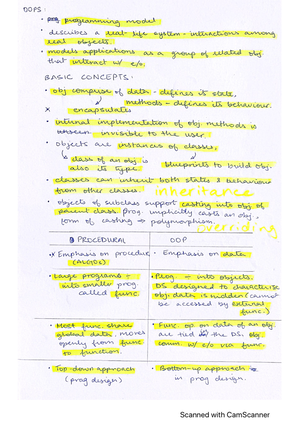 OOPS:
• prog programming model
• describes a real-life system: interactions among
real objects.
• models applications as a group of related obj.
that interact w/ e/o.
BASIC CONCEPTS:
• obj comprise of data - defines its state,
methods - defines its behaviour.
x encapsulates
• internal implementation of obj methods is
invisible to the user.
• objects are instances of classes,
class of an obj is
also its type.
blueprints to build obj.
• classes can inherit both states & behaviour
from other classes. inheritance
• objects of subclass support casting into obj of
parent class. prog implicitly casts an obj.
form of casting → polymorphism.
overriding
PROCEDURAL
OOP
• Emphasis on procedure
(ALGOs)
• Emphasis on data
• Large programs ÷
into smaller prog
called func.
• Prog. ÷ into objects.
DS designed to characterise
obj. data is hidden (cannot
be accessed by external
func.)
• Most func. share
global data, moves
openly from func
to function.
• Func. op on data of an obj.
are tied in the DS. obj
comm. w/ e/o via func.
• Top down approach
(prog design)
• Bottom-up approach
in prog design.
Scanned with CamScanner